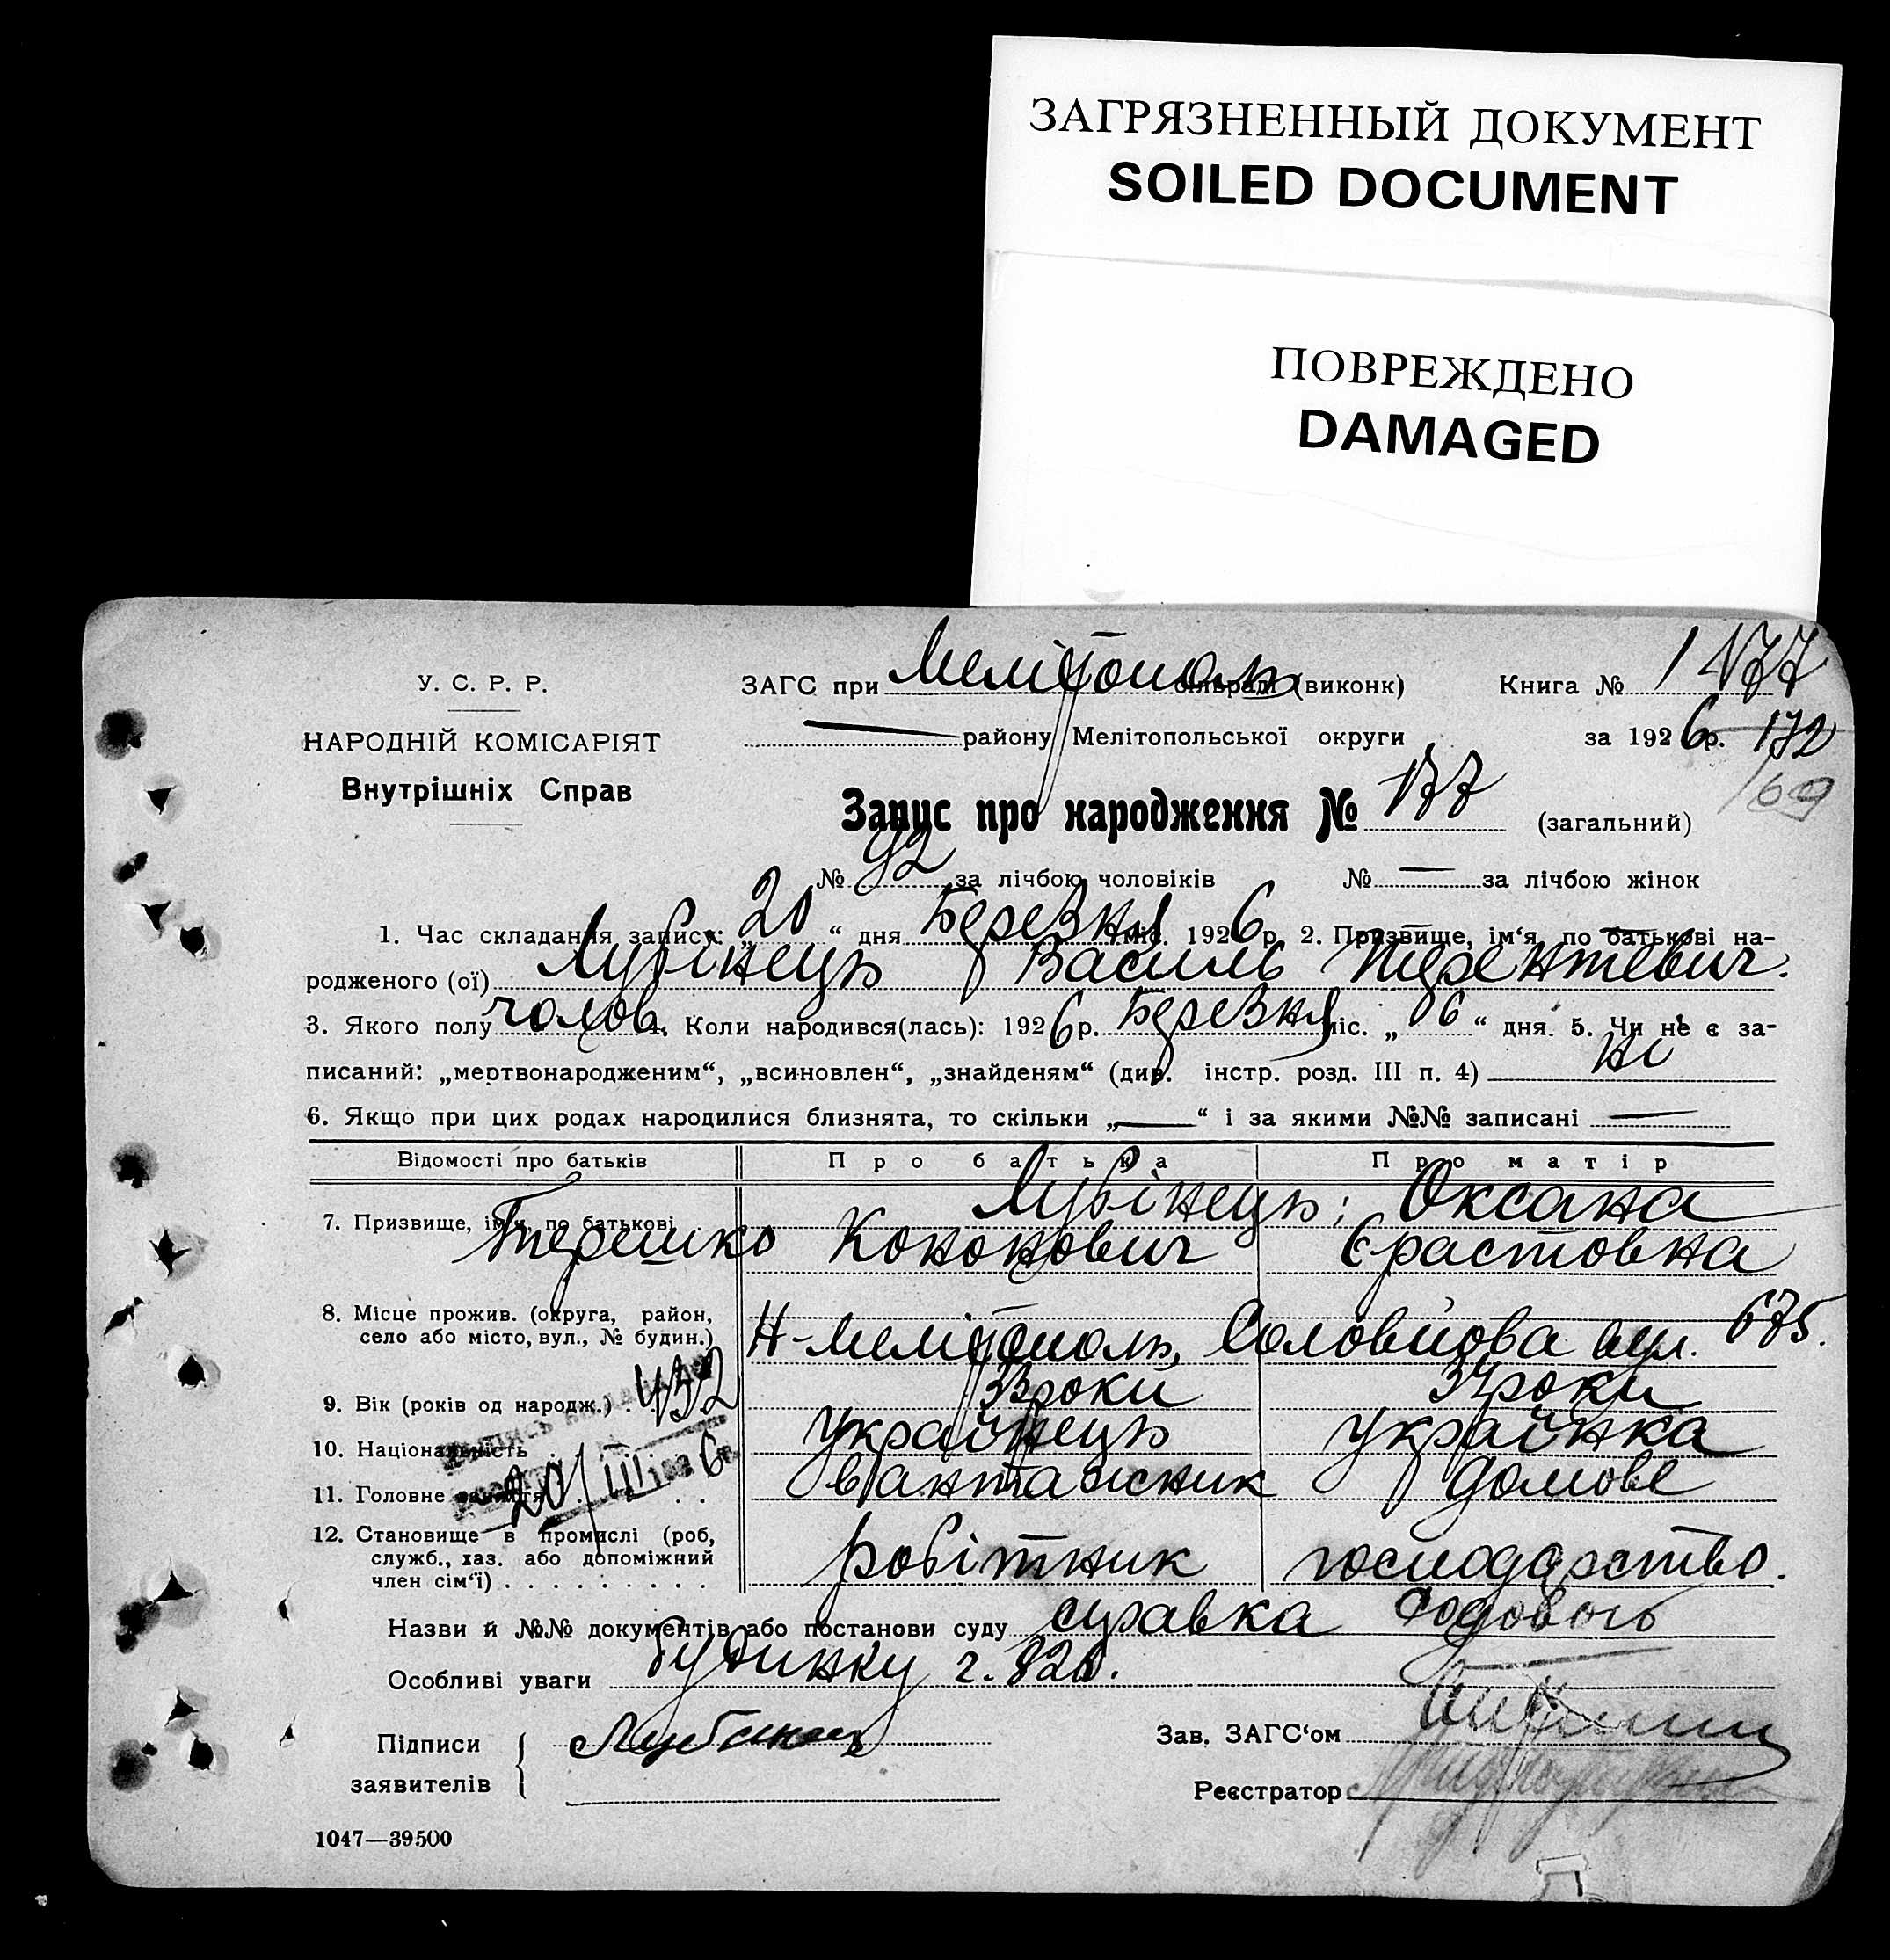 ЗАГРЯЗНЕННЫЙ ДОКУМЕНТ
SOILED DOCUMENT
ПОВРЕЖДЕНО
DAMAGED
У. С. Р. Р. ЗАГС при Мелітополь сільраді (виконк) Книга № 1 177
НАРОДНІЙ КОМІСАРІЯТ — району Мелітопольської округи за 1926 р. 172
Внутрішніх Справ 169
Запис про народження № 177 (загальний)
№ 92 за лічбою чоловіків № — за лічбою жінок
1. Час складання запису: „20“ дня Березня міс. 1926 р. 2. Призвище, ім'я, по батькові на-
родженого (ої) Лубінець Василь Терентевич.
3. Якого полу чолов. 4. Коли народився(лась): 1926 р. Березня міс. „06“ дня. 5. Чи не є за-
писаний: „мертвонародженим“, „всиновлен“, „знайденям“ (див. інстр. розд. III п. 4) ні
6. Якщо при цих родах народилися близнята, то скільки „—“ і за якими №№ записані —
Відомості про батьків Про батька Про матір
7. Призвище, ім'я, по батькові Лубінець; Оксана
Терешко Кононович Єрастовна
8. Місце прожив. (округа, район,
село або місто, вул., № будин.) Н-Мелітополь, Соловйова вул. 675.
9. Вік (років од народж.) 432 33 роки 34 роки
10. Національність українець українка
11. Головне заняття 20/III 1926 г. вантажник домове
12. Становище в промислі (роб,
служб., хаз. або допоміжний робітник господарство.
член сім'ї)
Назви й №№ документів або постанови суду справка Родового
Особливі уваги будинку г. 820.
Підписи Лубінець Зав. ЗАГС'ом
заявителів Реєстратор
1047—39500